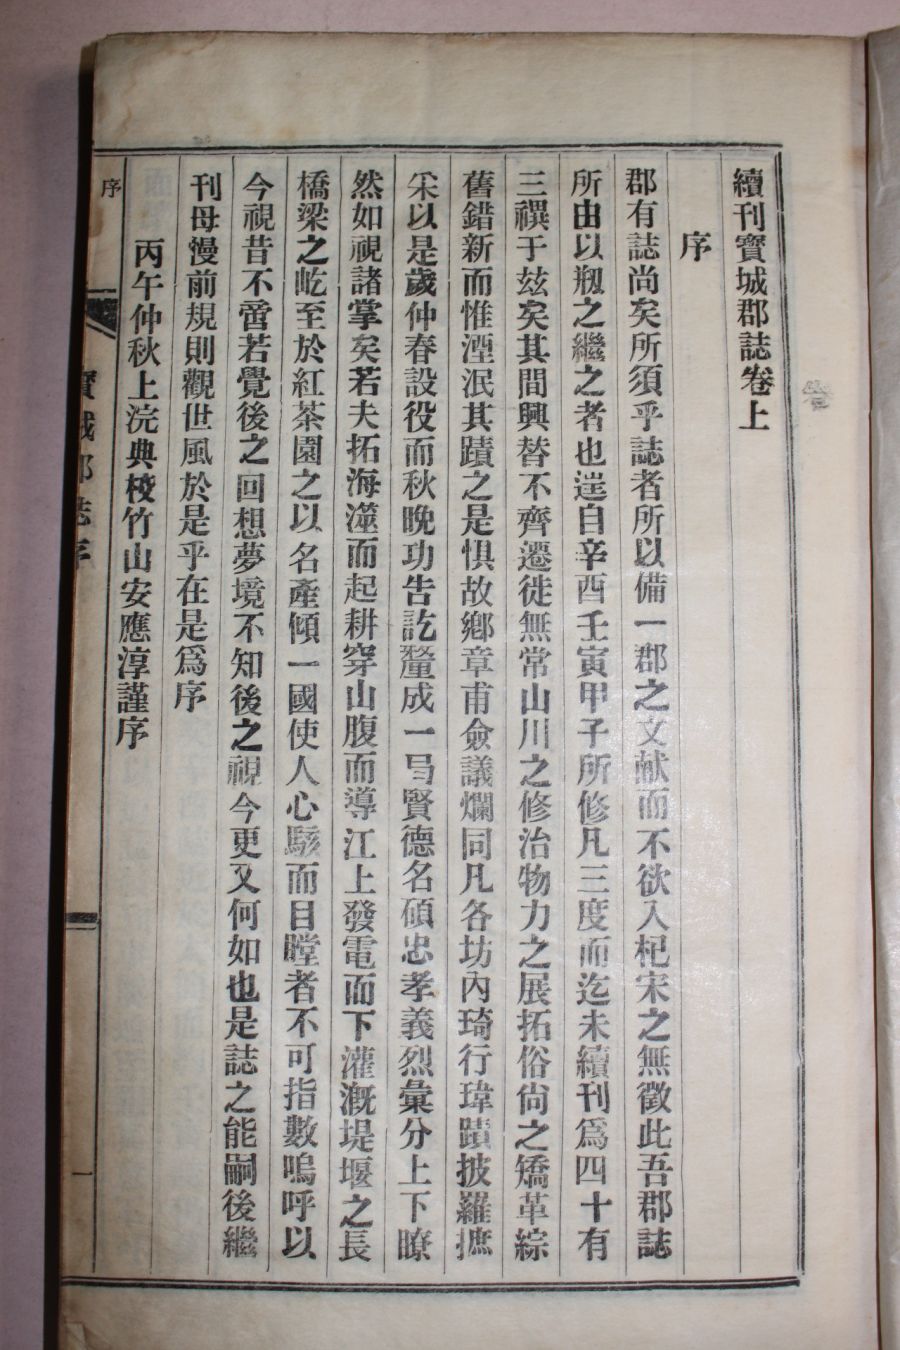 續刊寳城郡誌卷上
序
郡有誌尚矣所須乎誌者所以備一郡之文献而不欲入杞宋之無徵此吾郡誌
所由以剏之繼之者也逞自辛酉壬寅甲子所修凡三度而迄未續刊爲四十有
三禩于玆矣其間興替不齊遷徙無常山川之修治物力之展拓俗尙之矯革綜
舊錯新而惟湮泯其蹟之是惧故鄉章甫僉議爛同凡各坊內琦行瑋蹟披羅摭
采以是歲仲春設役而秋晩功告訖釐成一局賢德名碩忠孝義烈彙分上下瞭
然如視諸掌矣若夫拓海澨而起耕穿山腹而導江上發電而下灌漑堤堰之長
橋梁之屹至於紅茶園之以名產傾一國使人心駭而目瞠者不可指數嗚呼以
今視昔不啻若覺後之回想夢境不知後之視今更又何如也是誌之能嗣後繼
刊母慢前規則觀世風於是乎在是爲序
丙午仲秋上浣典校竹山安應淳謹序
序
寳城郡誌序
一